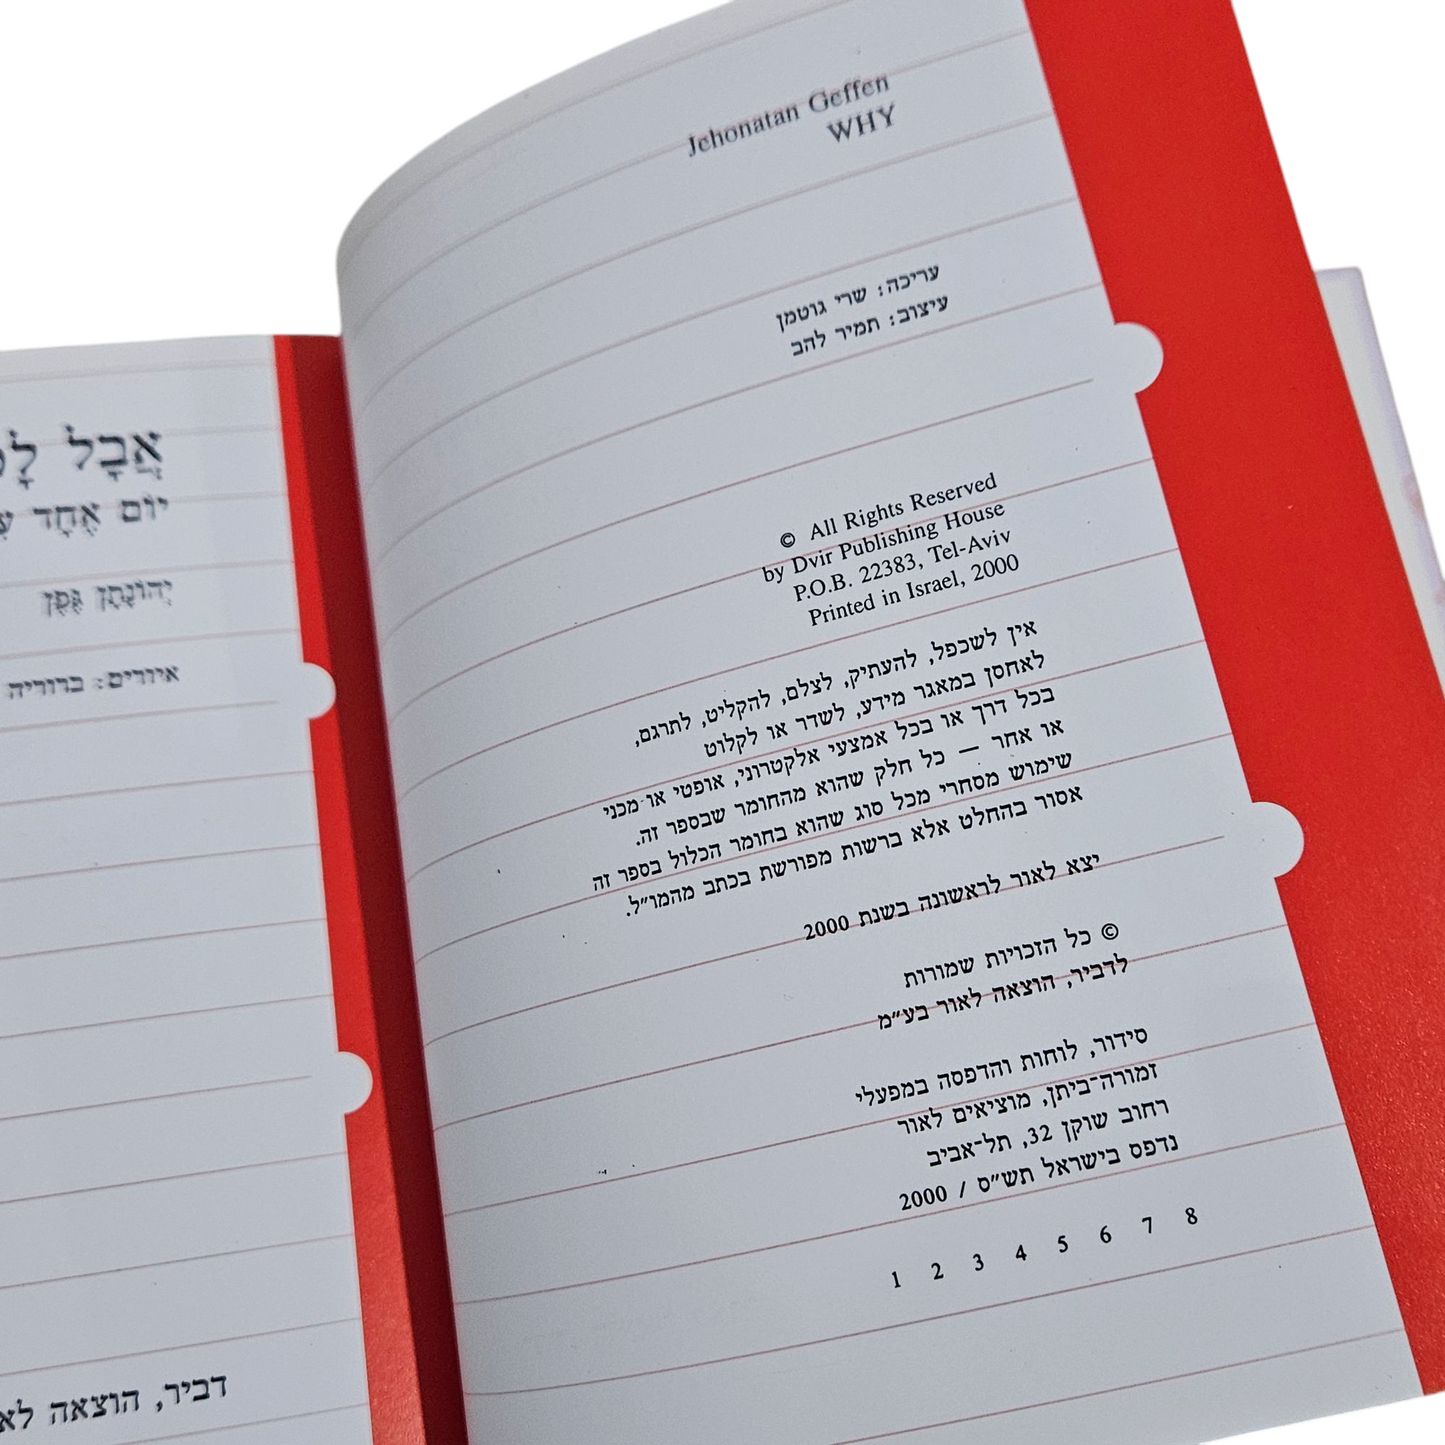 Jehonatan Geffen
WHY
עריכה: שרי גוטמן
עיצוב: תמיר להב
© All Rights Reserved
by Dvir Publishing House
P.O.B. 22383, Tel-Aviv
Printed in Israel, 2000
אין לשכפל, להעתיק, לצלם, להקליט, לתרגם,
לאחסן במאגר מידע, לשדר או לקלוט
בכל דרך או בכל אמצעי אלקטרוני, אופטי או מכני
או אחר — כל חלק שהוא מהחומר שבספר זה.
שימוש מסחרי מכל סוג שהוא בחומר הכלול בספר זה
אסור בהחלט אלא ברשות מפורשת בכתב מהמו״ל.
יצא לאור לראשונה בשנת 2000
© כל הזכויות שמורות
לדביר, הוצאה לאור בע״מ
סידור, לוחות והדפסה במפעלי
זמורה־ביתן, מוציאים לאור
רחוב שוקן 32, תל־אביב
נדפס בישראל תש״ס / 2000
1 2 3 4 5 6 7 8
אֲבָל
יוֹם אֶחָד
יְהוֹנָתָן גֶּפֶן
איורים: ברוריה
דביר, הוצאה